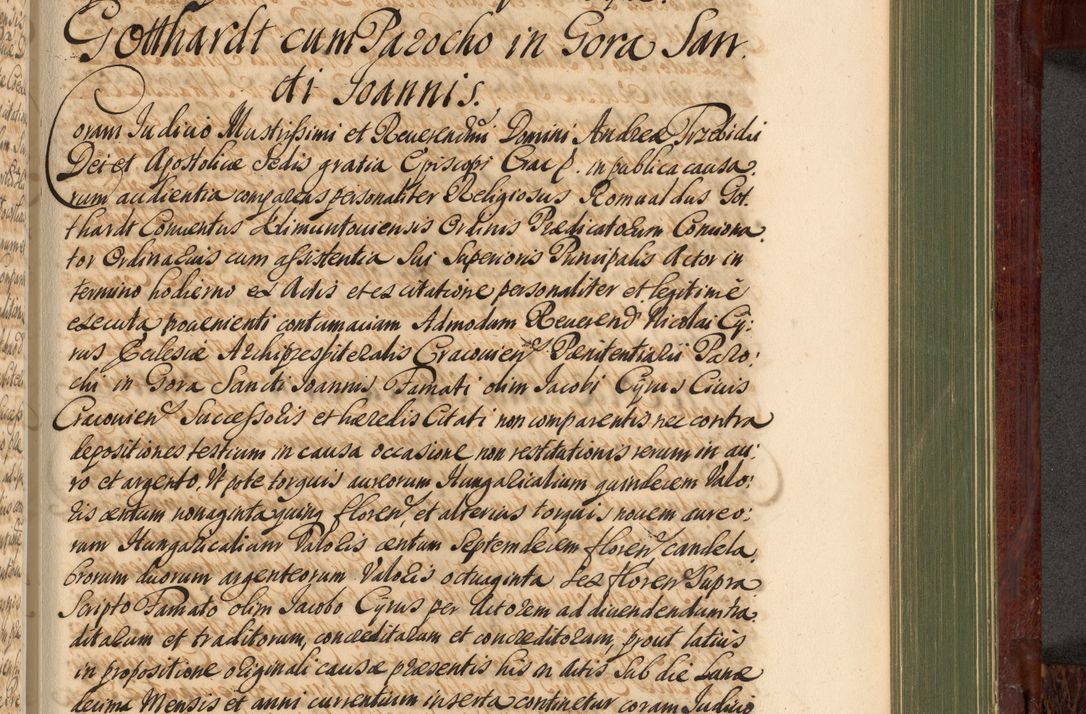 Gotthardt cum Parocho in Gora San-
cti Joannis.
Coram Judicio Illustrissimi et Reverendissimi Domini Andreæ Trzebicki
Dei et Apostolicæ Sedis gratia Episcopi Crac. in publica causa-
rum audientia comparens personaliter Religiosus Romualdus Got-
thardt Conventus Klimuntoviensis Ordinis Prædicatorum Conciona-
tor Ordinarius cum assistentia Sui Superioris Principalis Actor in
termino hodierno ex Actis et ex citatione personaliter et legitime
executa provenienti contumaciam Admodum Reverend Nicolai Cy-
rus Ecclesiæ Archipresbiteralis Cracovien Pænitentiarii Paro-
chi in Gora Sancti Joannis Famati olim Jacobi Cyrus Civis
Cracovien Successoris et hæredis Citati non comparentis nec contra
depositiones testium in causa occasione non restitutionis rerum in au-
ro et argento, Ut pote torquis aureorum Hungaricalium quindecem Valo-
ris centum nonaginta quinq floren, et alterius torquis novem aureo-
rum Hungaricalium Valoris centum Septemdecem floren candela-
brorum duorum argenteorum Valoris octuaginta sex floren Supra
Scripto Famato olim Jacobo Cyrus per Actorem ad divendendum tra-
ditarum et traditorum, concreditarum et concreditorum, prout latius
in propositione originali causæ præsentis his in Actis Sub die Lunæ
decima Mensis et anni currentium inserta continetur coram Judicio